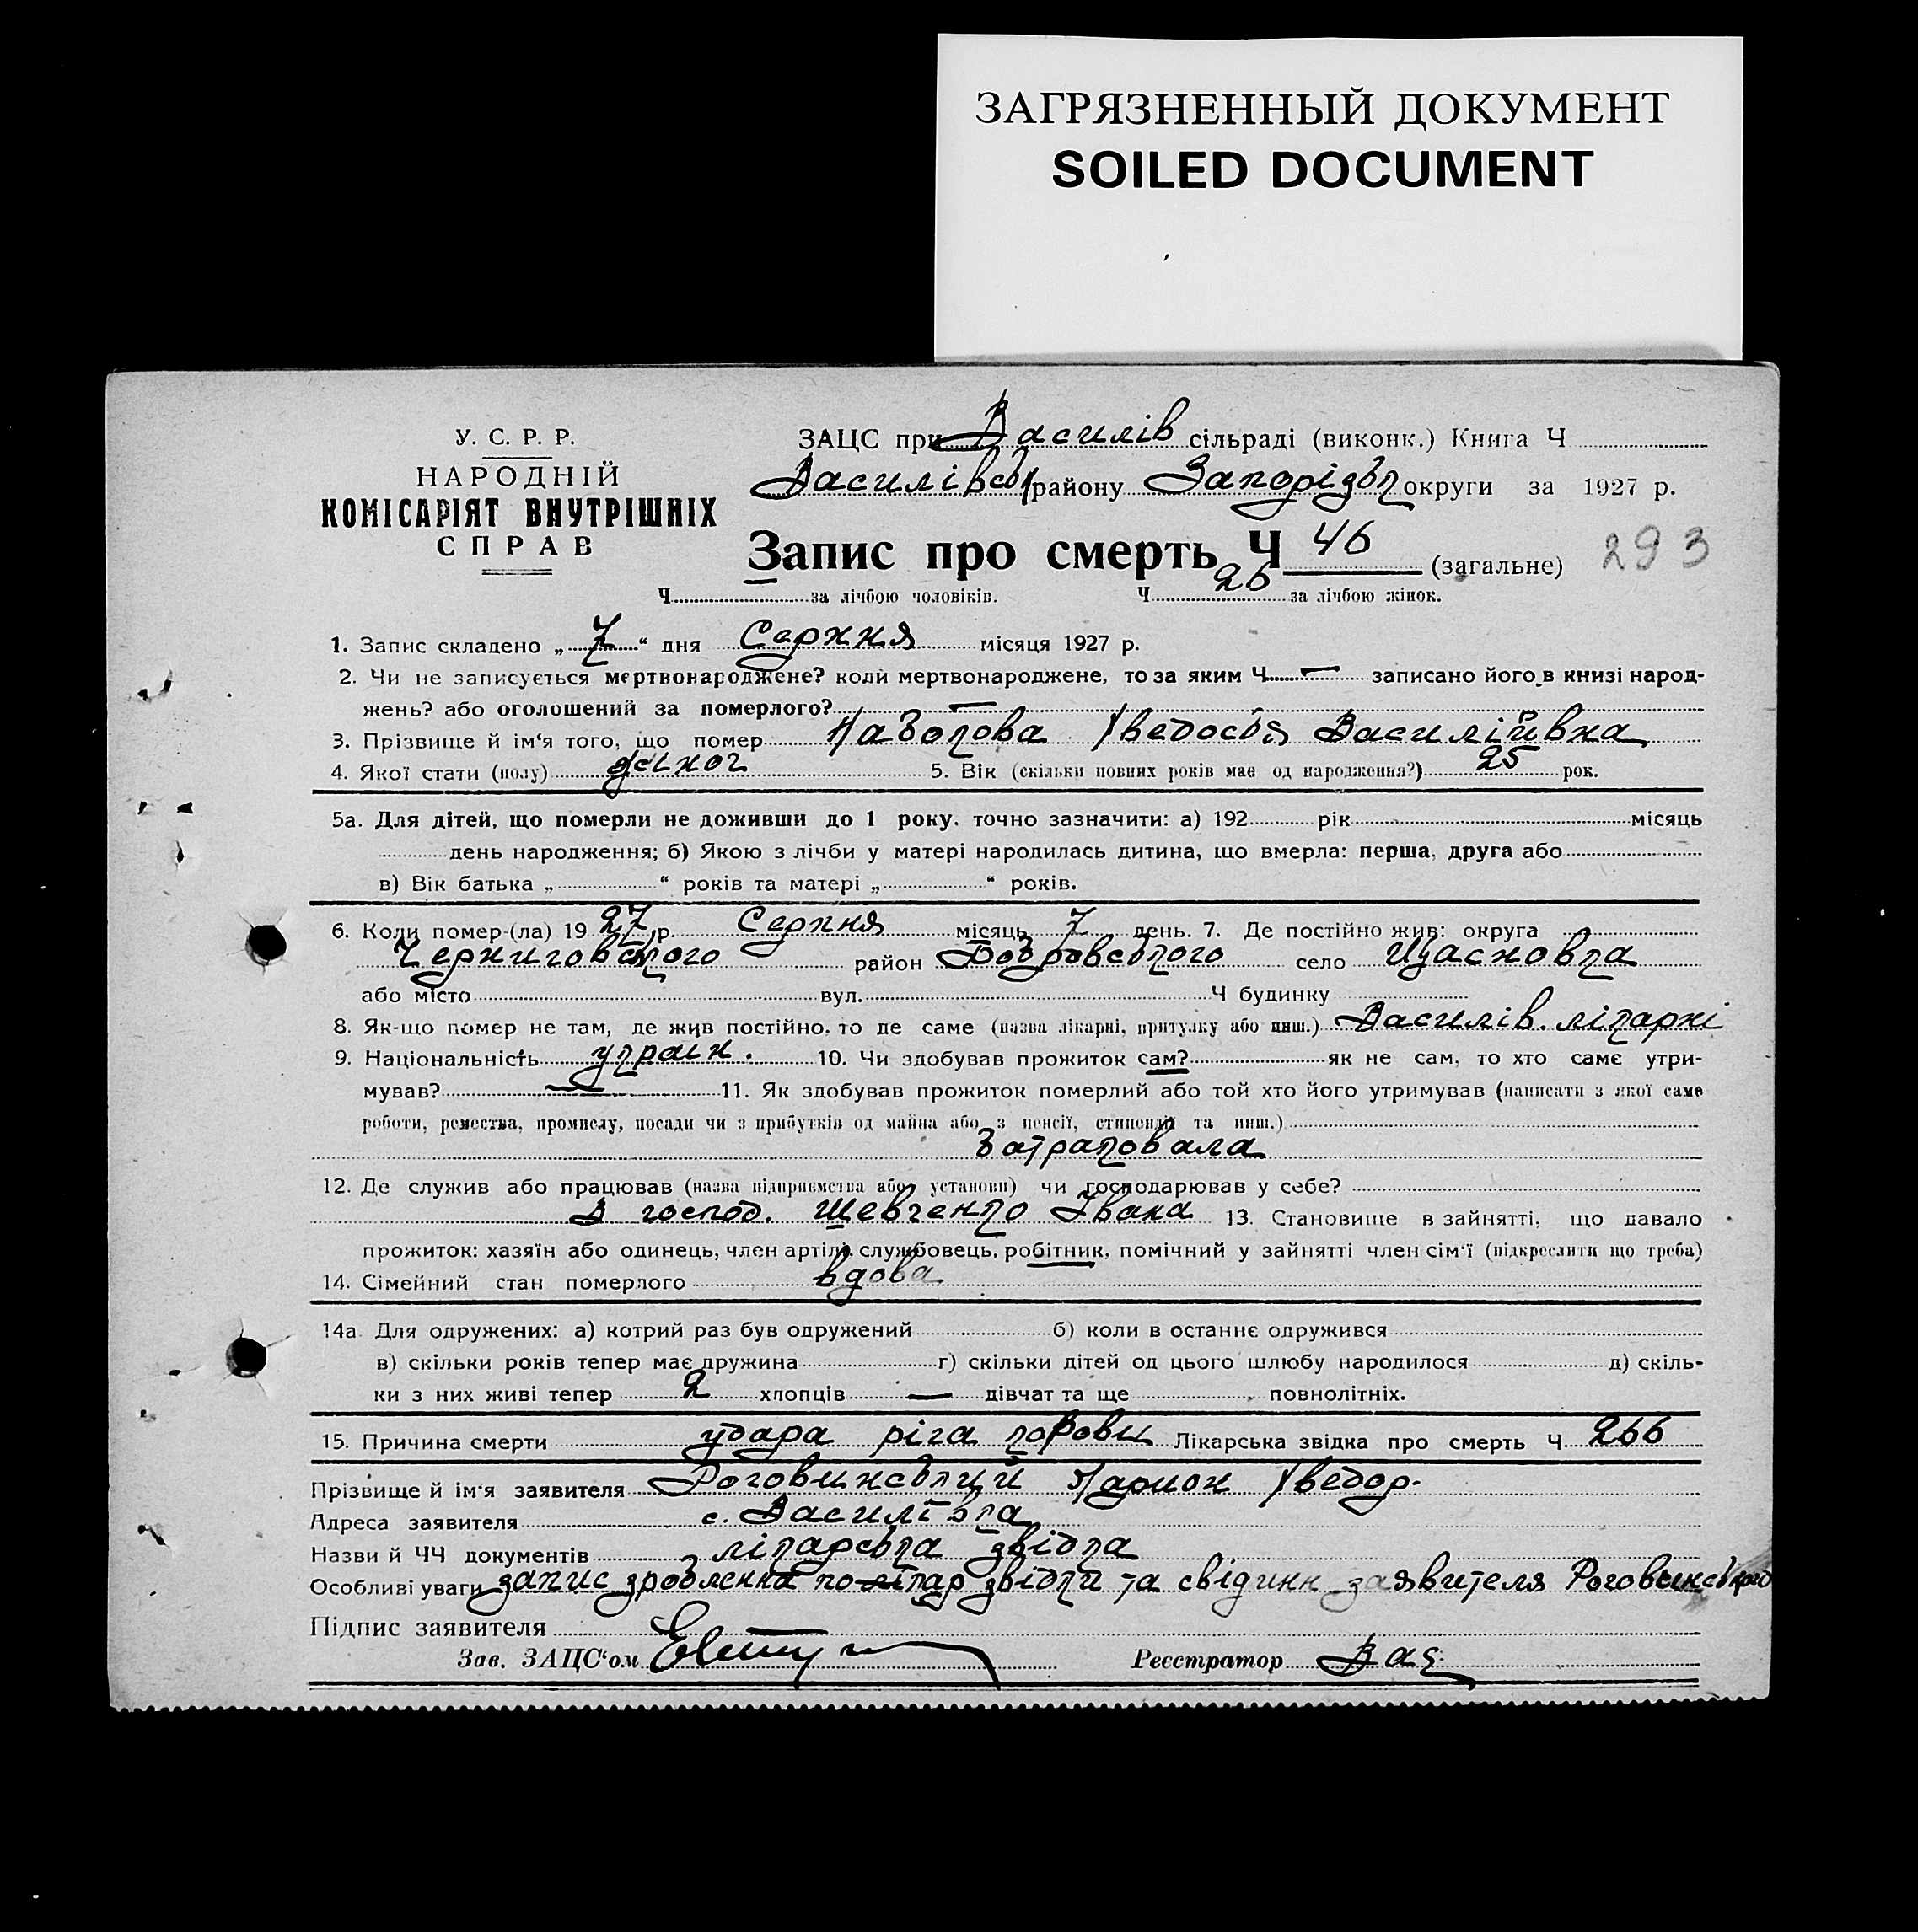 ЗАГРЯЗНЕННЫЙ ДОКУМЕНТ
SOILED DOCUMENT
У. С. Р. Р.
НАРОДНІЙ
КОМІСАРІЯТ ВНУТРІШНІХ
СПРАВ
ЗАЦС при Василів сільраді (виконк.) Книга Ч
Василівськ району Запорізьк округи за 1927 р.
Запис про смерть Ч 46 (загальне) 293
Ч за лічбою чоловіків. Ч 26 за лічбою жінок.
1. Запис складено „ 7 “ дня Серпня місяця 1927 р.
2. Чи не записується мертвонароджене? коли мертвонароджене, то за яким Ч — записано його в книзі народ-
жень? або оголошений за померлого? —
3. Прізвище й ім‘я того, що помер Хведосья Василійвна
4. Якої статі (полу) жіноч 5. Вік (скільки повних років має од народження?) 25 рок.
5а. Для дітей, що померли не доживши до 1 року, точно зазначити: а) 192 рік місяць
день народження; б) Якою з лічби у матері народилась дитина, що вмерла: перша, друга або
в) Вік батька „ “ років та матері „ “ років.
6. Коли помер-(ла) 1927 р. Серпня місяць 7 день. 7. Де постійно жив: округа
Черниговського район Бобровського село Щасновка
або місто вул. Ч будинку
8. Як-що помер не там, де жив постійно, то де саме (назва лікарні, притулку або инш.) Василів. лікарні
9. Національність україн. 10. Чи здобував прожиток сам? як не сам, то хто саме утри-
мував? — 11. Як здобував прожиток померлий або той хто його утримував (написати з якої саме
роботи, ремества, промислу, посади чи з прибутків од майна або з пенсії, стипендії та инш.)
Батракувала
12. Де служив або працював (назва підприємства або установи) чи господарював у себе?
В господ. Шевченко Івана 13. Становище в зайнятті, що давало
прожиток: хазяїн або одинець, член артілі, службовець, робітник, помічний у зайнятті член сім‘ї (підкреслити що треба)
14. Сімейний стан померлого вдова
14а. Для одружених: а) котрий раз був одружений б) коли в останнє одружився
в) скільки років тепер має дружина г) скільки дітей од цього шлюбу народилося д) скіль-
ки з них живі тепер 2 хлопців — дівчат та ще повнолітніх.
15. Причина смерти удара ріга корови Лікарська звідка про смерть Ч 266
Прізвище й ім‘я заявителя Роговинський Ларион Хведор.
Адреса заявителя с. Василівка
Назви й ЧЧ документів лікарська звідка
Особливі уваги запис зробленна по лікар звідки та свідчинн заявителя Роговинського
Підпис заявителя
Зав. ЗАЦС‘ом Реєстратор Вас